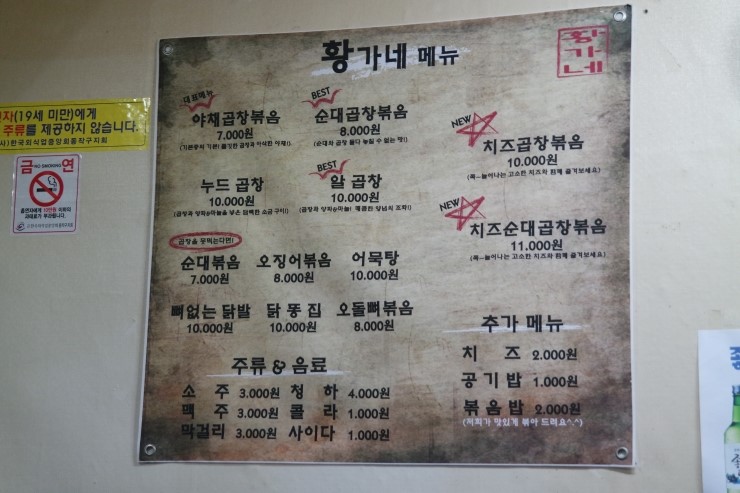 황가네 메뉴
황
가
네
대표메뉴
야채곱창볶음
7.000원
BEST
순대곱창볶음
8.000원
(순대와 곱창 둘다 놓칠 수 없는 맛!)
NEW
치즈곱창볶음
10.000원
(쭉~늘어나는 고소한 치즈와 함께 즐겨보세요)
누드 곱창
10.000원
BEST
알 곱창
10.000원
NEW
치즈순대곱창볶음
11.000원
(쭉~늘어나는 고소한 치즈와 함께 즐겨보세요)
곱창을 못먹는다면!
순대볶음
7.000원
오징어볶음
8.000원
어묵탕
10.000원
뼈없는 닭발
10.000원
닭 똥 집
10.000원
오돌뼈볶음
8.000원
주류 & 음료
소 주 3.000원 청 하 4.000원
맥 주 3.000원 콜 라 1.000원
막걸리 3.000원 사이다 1.000원
추가 메뉴
치 즈 2.000원
공기밥 1.000원
볶음밥 2.000원
(저희가 맛있게 볶아 드려요^.^)
자(19세 미만)에게
주류를 제공하지 않습니다.
사)한국외식업중앙회동작구지회
금연
NO SMOKING